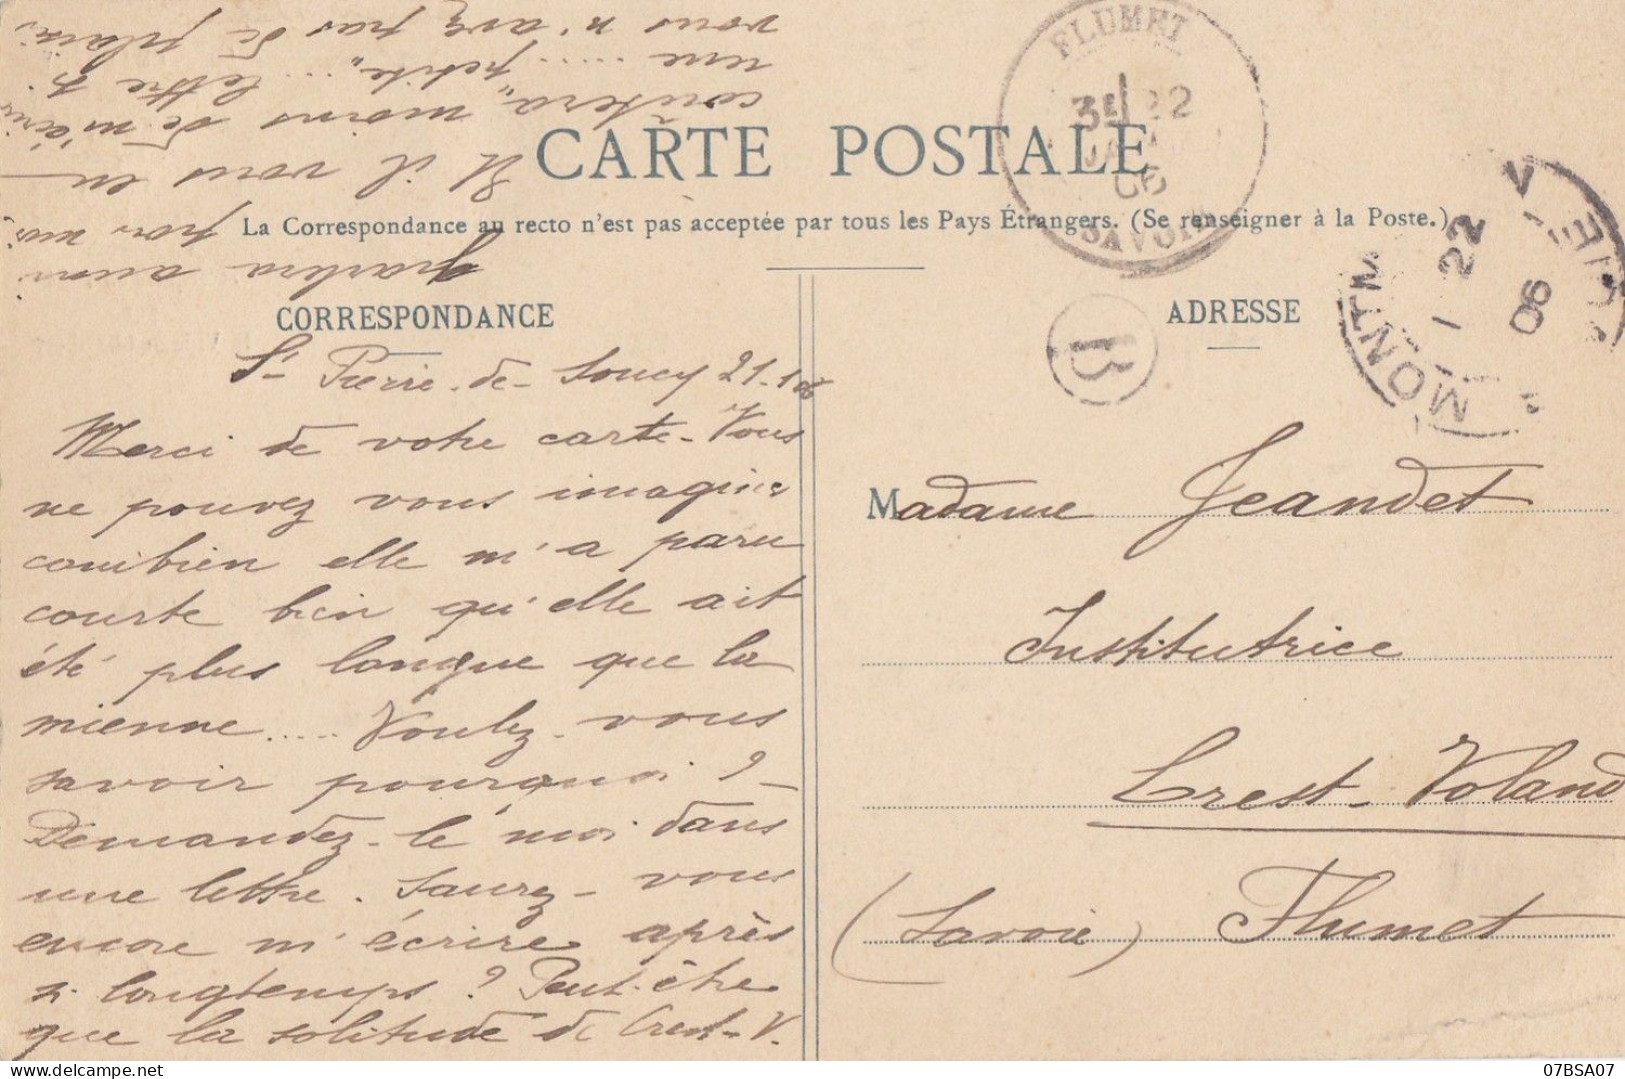 CARTE POSTALE
La Correspondance au recto n'est pas acceptée par tous les Pays Étrangers. (Se renseigner à la Poste.)
CORRESPONDANCE
St Pierre-de-Soucy 21-1-06
Merci de votre carte-Vous
ne pouvez vous imaginer
combien elle m'a paru
courte bien qu'elle ait
été plus longue que la
mienne..... Voulez-vous
savoir pourquoi ? -
Demandez-le moi dans
une lettre. Saurez-vous
encore m'écrire après
si longtemps ? Peut-être
que la solitude de Crest-V.
gardera aussi
Et il vous en
coûtera "moins de m'écrire
une ..... petite" ... lettre si
vous n'avez pas de
ADRESSE
Madame Jeandet
Institutrice
Crest-Voland
(Savoie) Flumet
FLUMET
3E 22
06
SAVOIE
B
MONTM
1 22
06
07BSA07